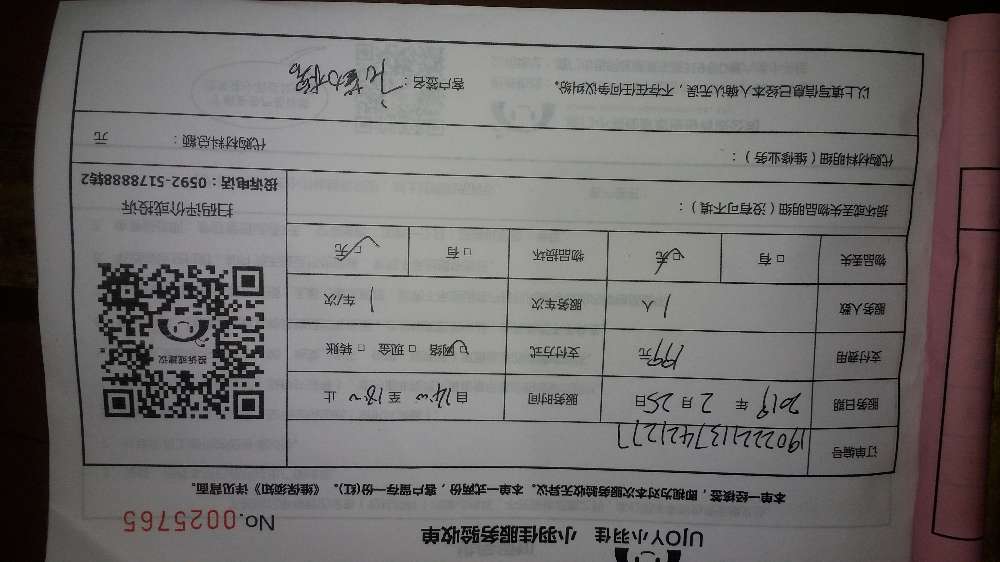 UJOY小羽佳 小羽佳服务验收单
No.0025765
本单一经核签，即视为对本次服务验收无异议。本单一式两份，客户留存一份(红)。《维保须知》详见背面。
订单编号 1902221137421277
服务日期 2019 年 2 月 25日 服务时间 自14:00 至 18:00 止
支付费用 199元 支付方式 ☑网络 □现金 □转账
服务人数 1 人 服务车次 1 车/次
物品丢失 □有 ☑无 物品损坏 □有 ☑无
投诉或建议
扫码评价或投诉
投诉电话：0592-5178888转2
损坏或丢失物品明细（没有可不填）：
代购材料明细（维修业务）： 代购材料总额： 元
以上填写信息已经本人确认无误，不存在任何争议纠纷。 客户签名：